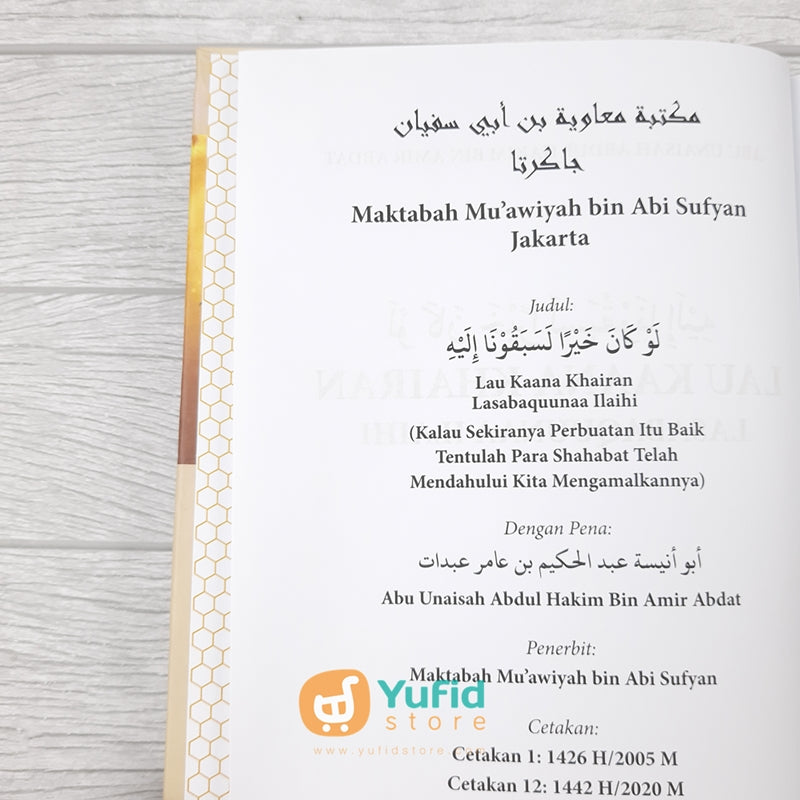 مكتبة معاوية بن أبي سفيان
جاكرتا
Maktabah Mu'awiyah bin Abi Sufyan
Jakarta
Judul:
لَوْ كَانَ خَيْرًا لَسَبَقُوْنَا إِلَيْهِ
Lau Kaana Khairan
Lasabaquunaa Ilaihi
(Kalau Sekiranya Perbuatan Itu Baik
Tentulah Para Shahabat Telah
Mendahului Kita Mengamalkannya)
Dengan Pena:
أبو أنيسة عبد الحكيم بن عامر عبدات
Abu Unaisah Abdul Hakim Bin Amir Abdat
Penerbit:
Maktabah Mu'awiyah bin Abi Sufyan
Yufid
store
www.yufidstore.com
Cetakan:
Cetakan 1: 1426 H/2005 M
Cetakan 12: 1442 H/2020 M